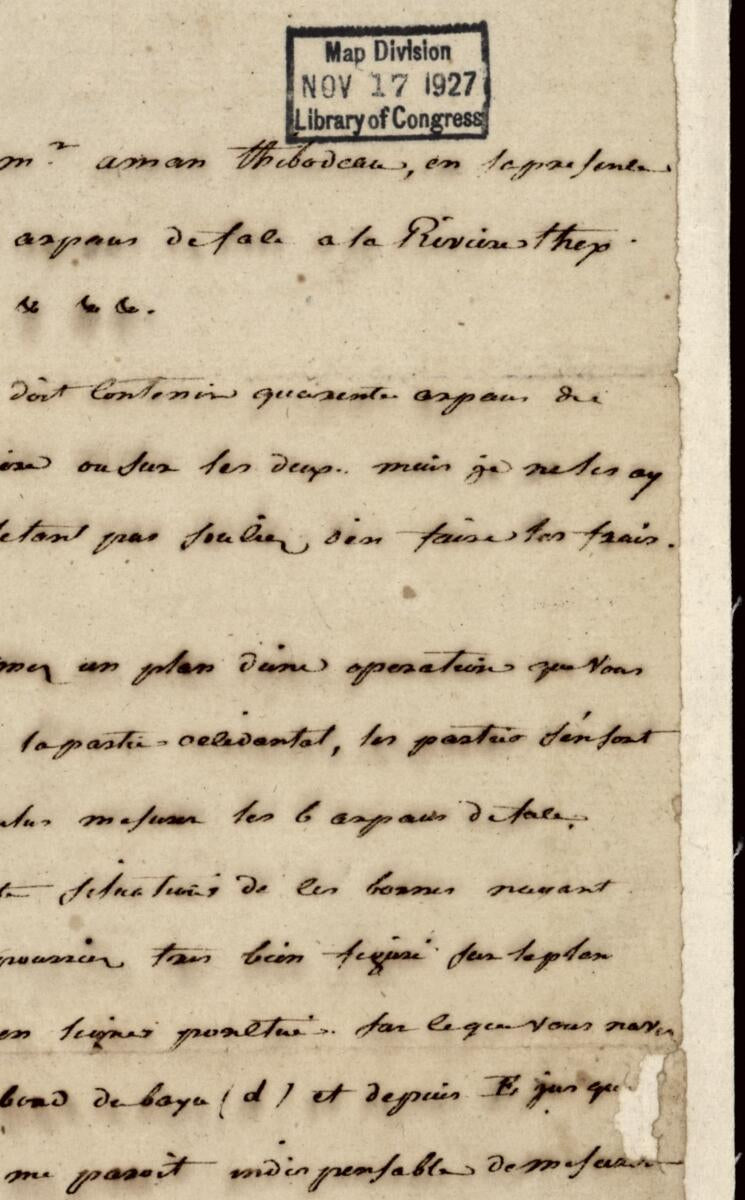 Map Division
NOV 17 1927
Library of Congress
mr aman thibodeau, en sa presence
arpans de face a la Riviere thex
& & &.
doit Contenir quarente arpans de
ou sur les deux. mais je ne les ay
pas foulieu d'en faire les frais.
un plan d'une operation que vous
la partie occidantal, les parties s'en sont
mesurer les 6 arpans de face.
situations de ces bornes nayant
tres bien figuré sur le plan
en lignes ponctué. sur ce que vous nave
bord du baya (d) et depuis E jus qu
me paroit indispensable de mesurer